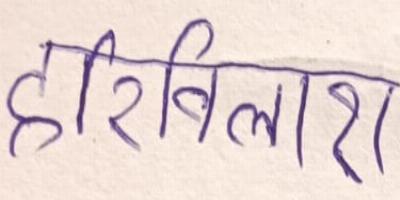 हरिविलाश